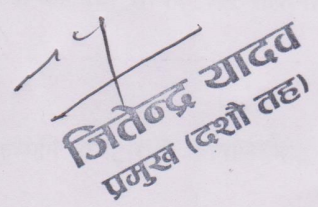 जितेन्द्र यादव
प्रमुख (दशौ तह)